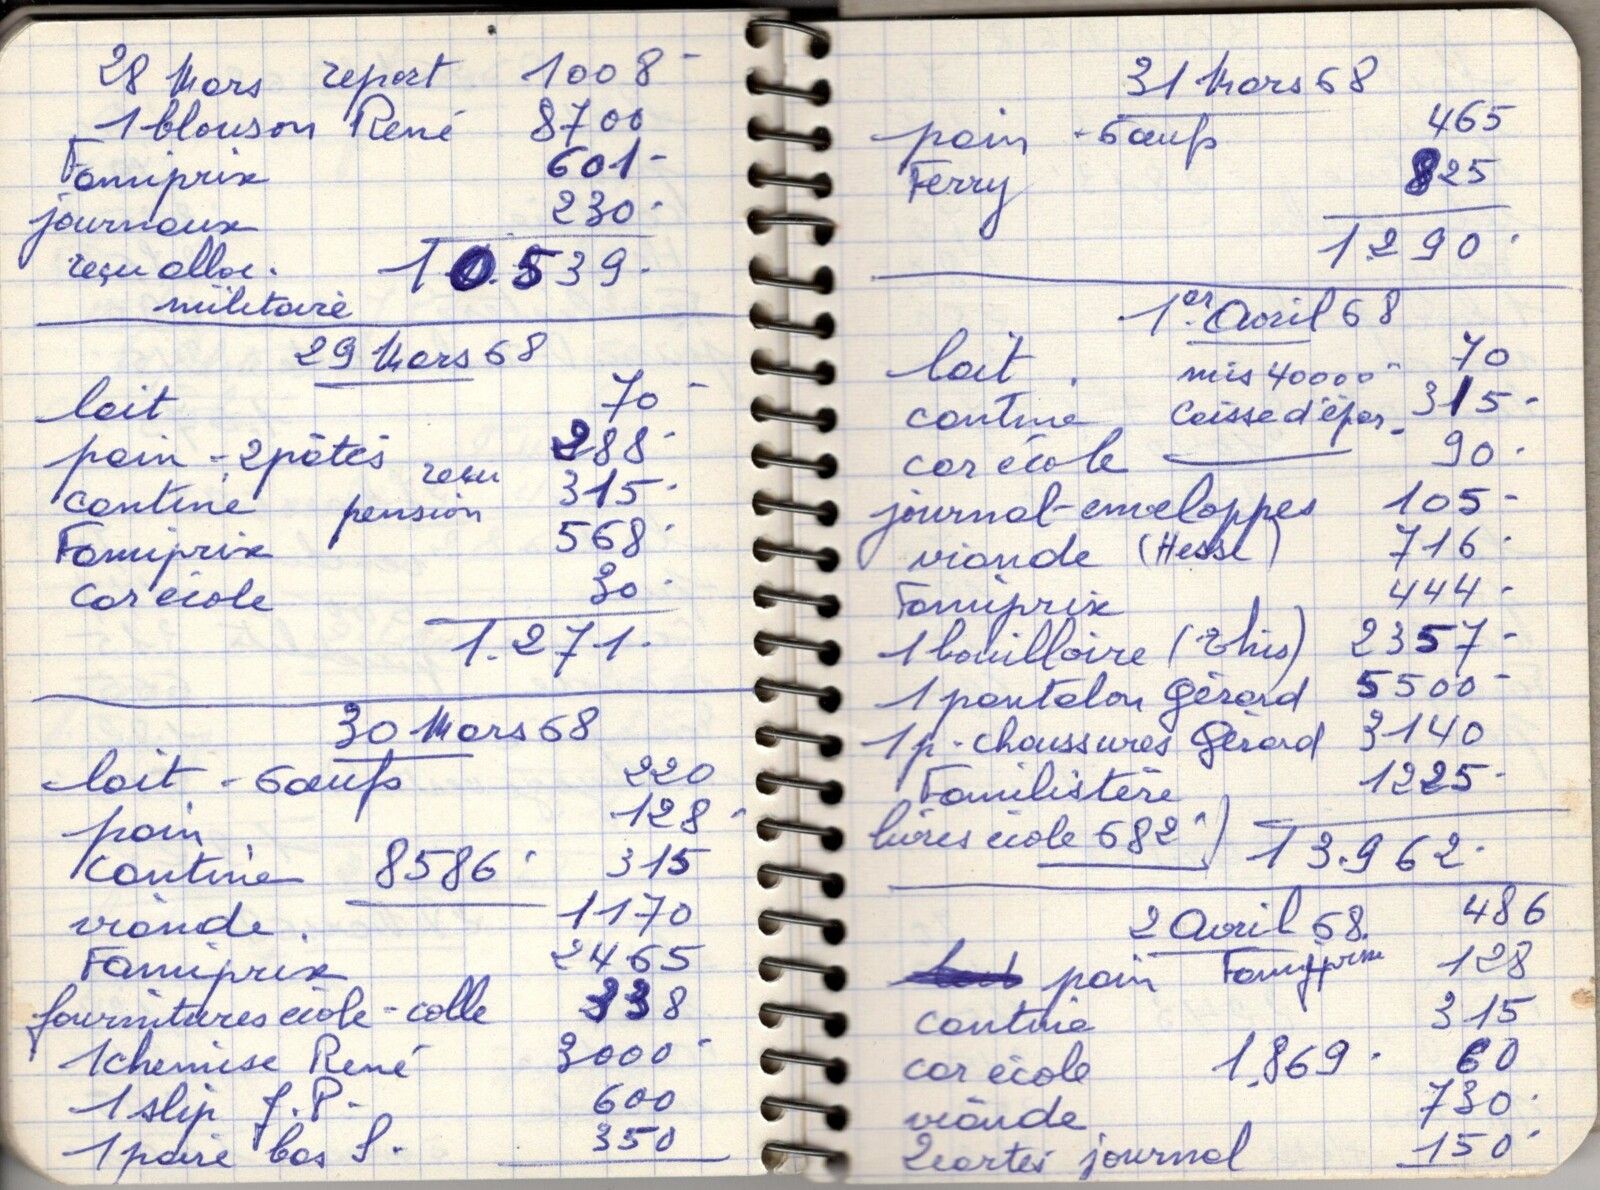 28 Mars report 1008-
1 blouson René 8700
Famiprix 601-
journaux 230-
reçu alloc. 10.539.
militaire
29 Mars 68
lait 70-
pain - 2 pâtés 288-
cantine reçu pension 315-
Famiprix 568-
car école 30-
1.271.
30 Mars 68
lait - 6 œufs 220
pain 128-
cantine 8586- 315
viande. 1170
Famiprix 2465
fournitures école - colle 338
1 chemise René 3000-
1 slip J.P. 600
1 paire bas S. 350
31 Mars 68
pain - 6 œufs 465
Ferry 825
1290.
1er Avril 68
lait. mis 40000- 70
cantine Caisse d'épar. 315-
car école 90-
journal - enveloppes 105-
viande (Hesse) 716-
Famiprix 444-
1 bouilloire (this) 2357-
1 pantalon Gérard 5500-
1 p. chaussures Gérard 3140
Familistère 1225-
livres école 682-) 13.962.
2 Avril 68. 486
pain Famiprix 128
cantine 315
car école 1.869. 60
viande 730-
2 cartes journal 150-